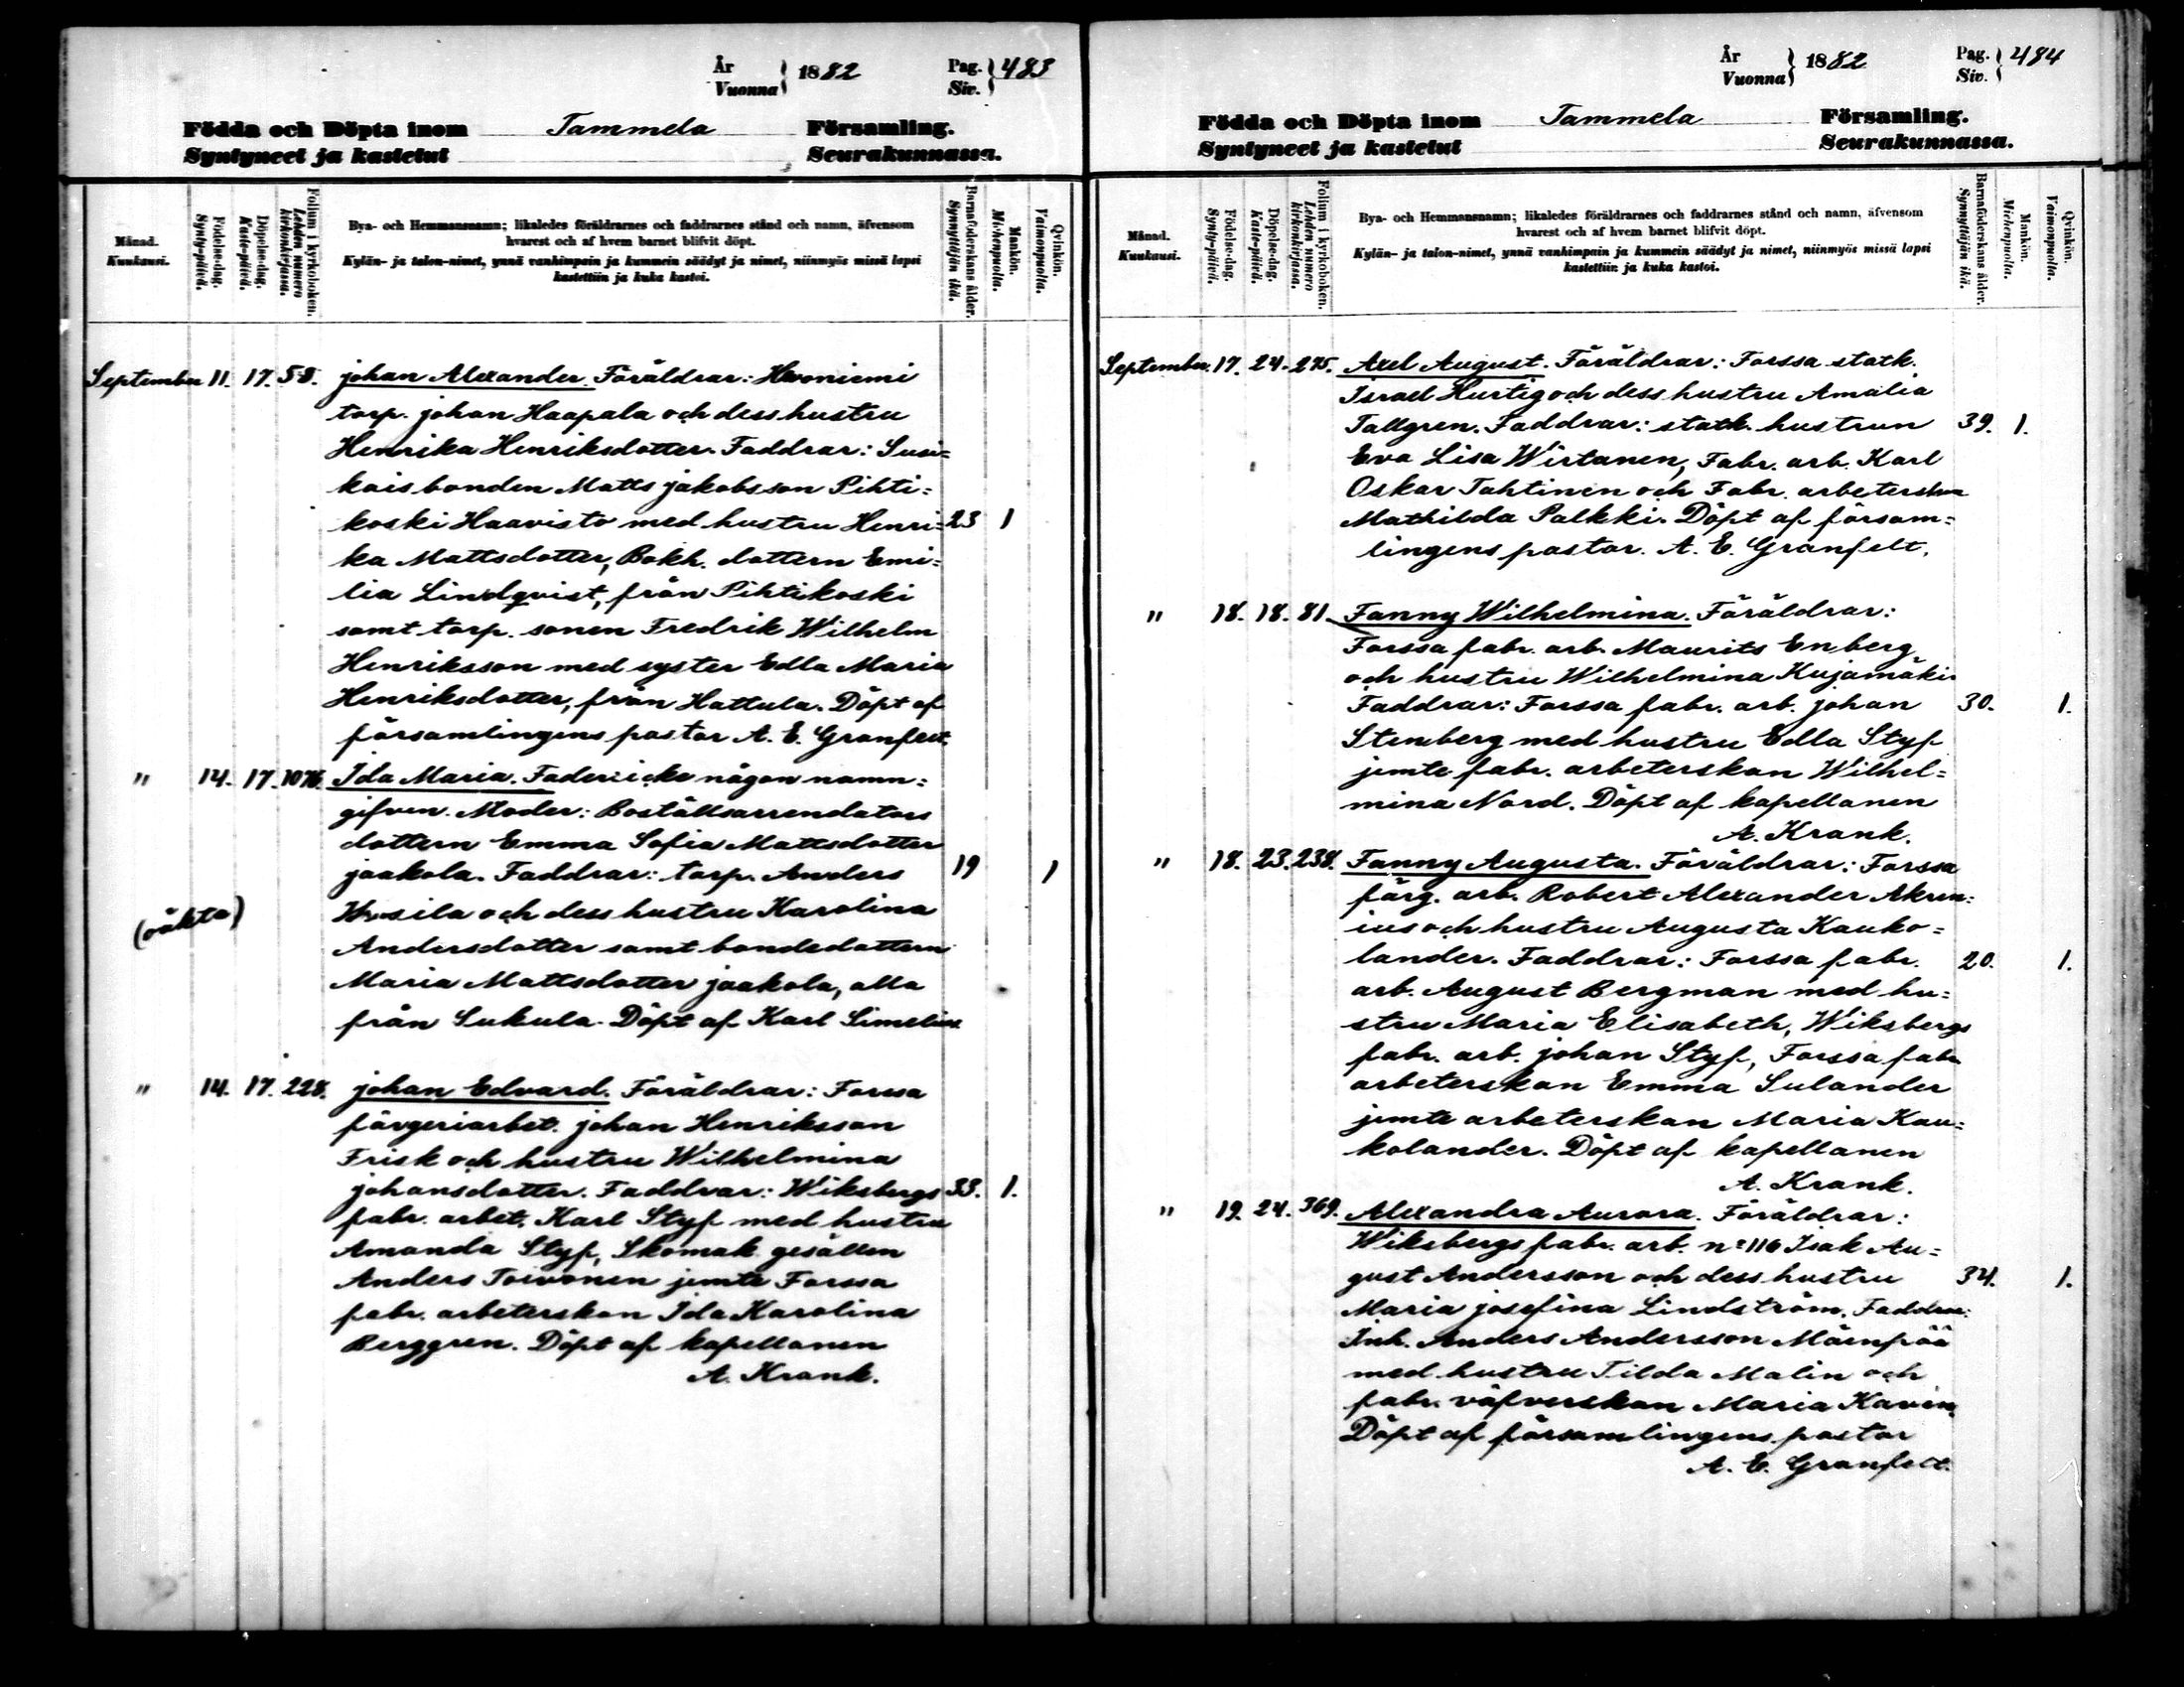 År
Vuonna } 1882
Pag.
Siv. } 483
Födda och Döpta inom Tammela Församling.
Syntyneet ja kastetut Seurakunnassa.
Månad.
Kuukausi.
Födelse-dag.
Synty-päivä.
Döpelse-dag.
Kaste-päivä.
Folium i kyrkoboken.
Lehden numero kirkonkirjassa.
Bya- och Hemmansnamn; likaledes föräldrarnes och faddrarnes stånd och namn, äfvensom
hvarest och af hvem barnet blifvit döpt.
Kylän- ja talon-nimet, ynnä vanhimpain ja kummein säädyt ja nimet, niinmyös missä lapsi
kastettiin ja kuka kastoi.
Barnaföderskans ålder.
Synnyttäjän ikä.
Mankön.
Miehenpuolta.
Qvinkön.
Vaimonpuolta.
September 11. 17. 58. Johan Alexander. Föräldrar: Hwoniemi
torp. Johan Haapala och dess hustru
Henrika Henriksdotter. Faddrar: Susi=
kais bonden Matts Jakobsson Pihti=
koski Haavisto med hustru Henri= 23 1
ka Mattsdotter, Bokh. dottern Emi=
lia Lindqvist, från Pihtikoski
samt torp. sonen Fredrik Wilhelm
Henriksson med syster Edla Maria
Henriksdotter, från Hattula. Döpt af
församlingens pastor A. E. Granfelt.
" 14. 17. 1076. Ida Maria. Fader icke någon namn=
gifven. Moder: Boställsarrendators
dottern Emma Sofia Mattsdotter
Jaakola. Faddrar: torp. Anders 19 1
(oäkta) och dess hustru Karolina
Andersdotter samt bondedottern
Maria Mattsdotter Jaakola, alla
från Sukula. Döpt af Karl Simelius.
" 14. 17. 228. Johan Edvard. Föräldrar: Forssa
färgeriarbet. Johan Henriksson
Frisk och hustru Wilhelmina
Johansdotter. Faddrar: Wiksbergs 33. 1.
fabr. arbet. Karl Styf med hustru
Amanda Styf, Skomak. gesällen
Anders Toivonen jemte Forssa
fabr. arbeterskan Ida Karolina
Berggren. Döpt af kapellanen
A. Krank.
År
Vuonna } 1882
Pag.
Siv. } 484
Födda och Döpta inom Tammela Församling.
Syntyneet ja kastetut Seurakunnassa.
Månad.
Kuukausi.
Födelse-dag.
Synty-päivä.
Döpelse-dag.
Kaste-päivä.
Folium i kyrkoboken.
Lehden numero kirkonkirjassa.
Bya- och Hemmansnamn; likaledes föräldrarnes och faddrarnes stånd och namn, äfvensom
hvarest och af hvem barnet blifvit döpt.
Kylän- ja talon-nimet, ynnä vanhimpain ja kummein säädyt ja nimet, niinmyös missä lapsi
kastettiin ja kuka kastoi.
Barnaföderskans ålder.
Synnyttäjän ikä.
Mankön.
Miehenpuolta.
Qvinkön.
Vaimonpuolta.
September. 17. 24. 275. Axel August. Föräldrar: Forssa statk.
Israel Hurtig och dess hustru Amalia
Tallgren. Faddrar: statk. hustrun 39. 1.
Eva Lisa Wirtanen, Fabr. arb. Karl
Oskar Tahtinen och Fabr. arbeterskan
Mathilda Palkki. Döpt af försam=
lingens pastor. A. E. Granfelt.
" 18. 18. 81. Fanny Wilhelmina. Föräldrar:
Forssa fabr. arb. Maurits Enberg
och hustru Wilhelmina Kujamäki.
Faddrar: Forssa fabr. arb. Johan 30. 1.
Stenberg med hustru Edla Styf
jemte fabr. arbeterskan Wilhel=
mina Nord. Döpt af kapellanen
A. Krank.
" 18. 23. 238. Fanny Augusta. Föräldrar: Forssa
färg. arb. Robert Alexander Akren=
ius och hustru Augusta Kauko=
lander. Faddrar: Forssa fabr. 20. 1.
arb. August Bergman med hu=
stru Maria Elisabeth, Wiksbergs
fabr. arb. Johan Styf, Forssa fabr.
arbeterskan Emma Sulander
jemte arbeterskan Maria Kau=
kolander. Döpt af kapellanen
A. Krank.
" 19. 24. 369. Alexandra Aurora. Föräldrar:
Wiksbergs fabr. arb. nº 116 Isak Au=
gust Andersson och dess hustru 34. 1.
Maria Josefina Lindström. Faddrar:
Inh. Anders Andersson Mäenpää
med hustru Tilda Malin och
fabr. väfverskan Maria
Döpt af församlingens pastor
A. E. Granfelt.